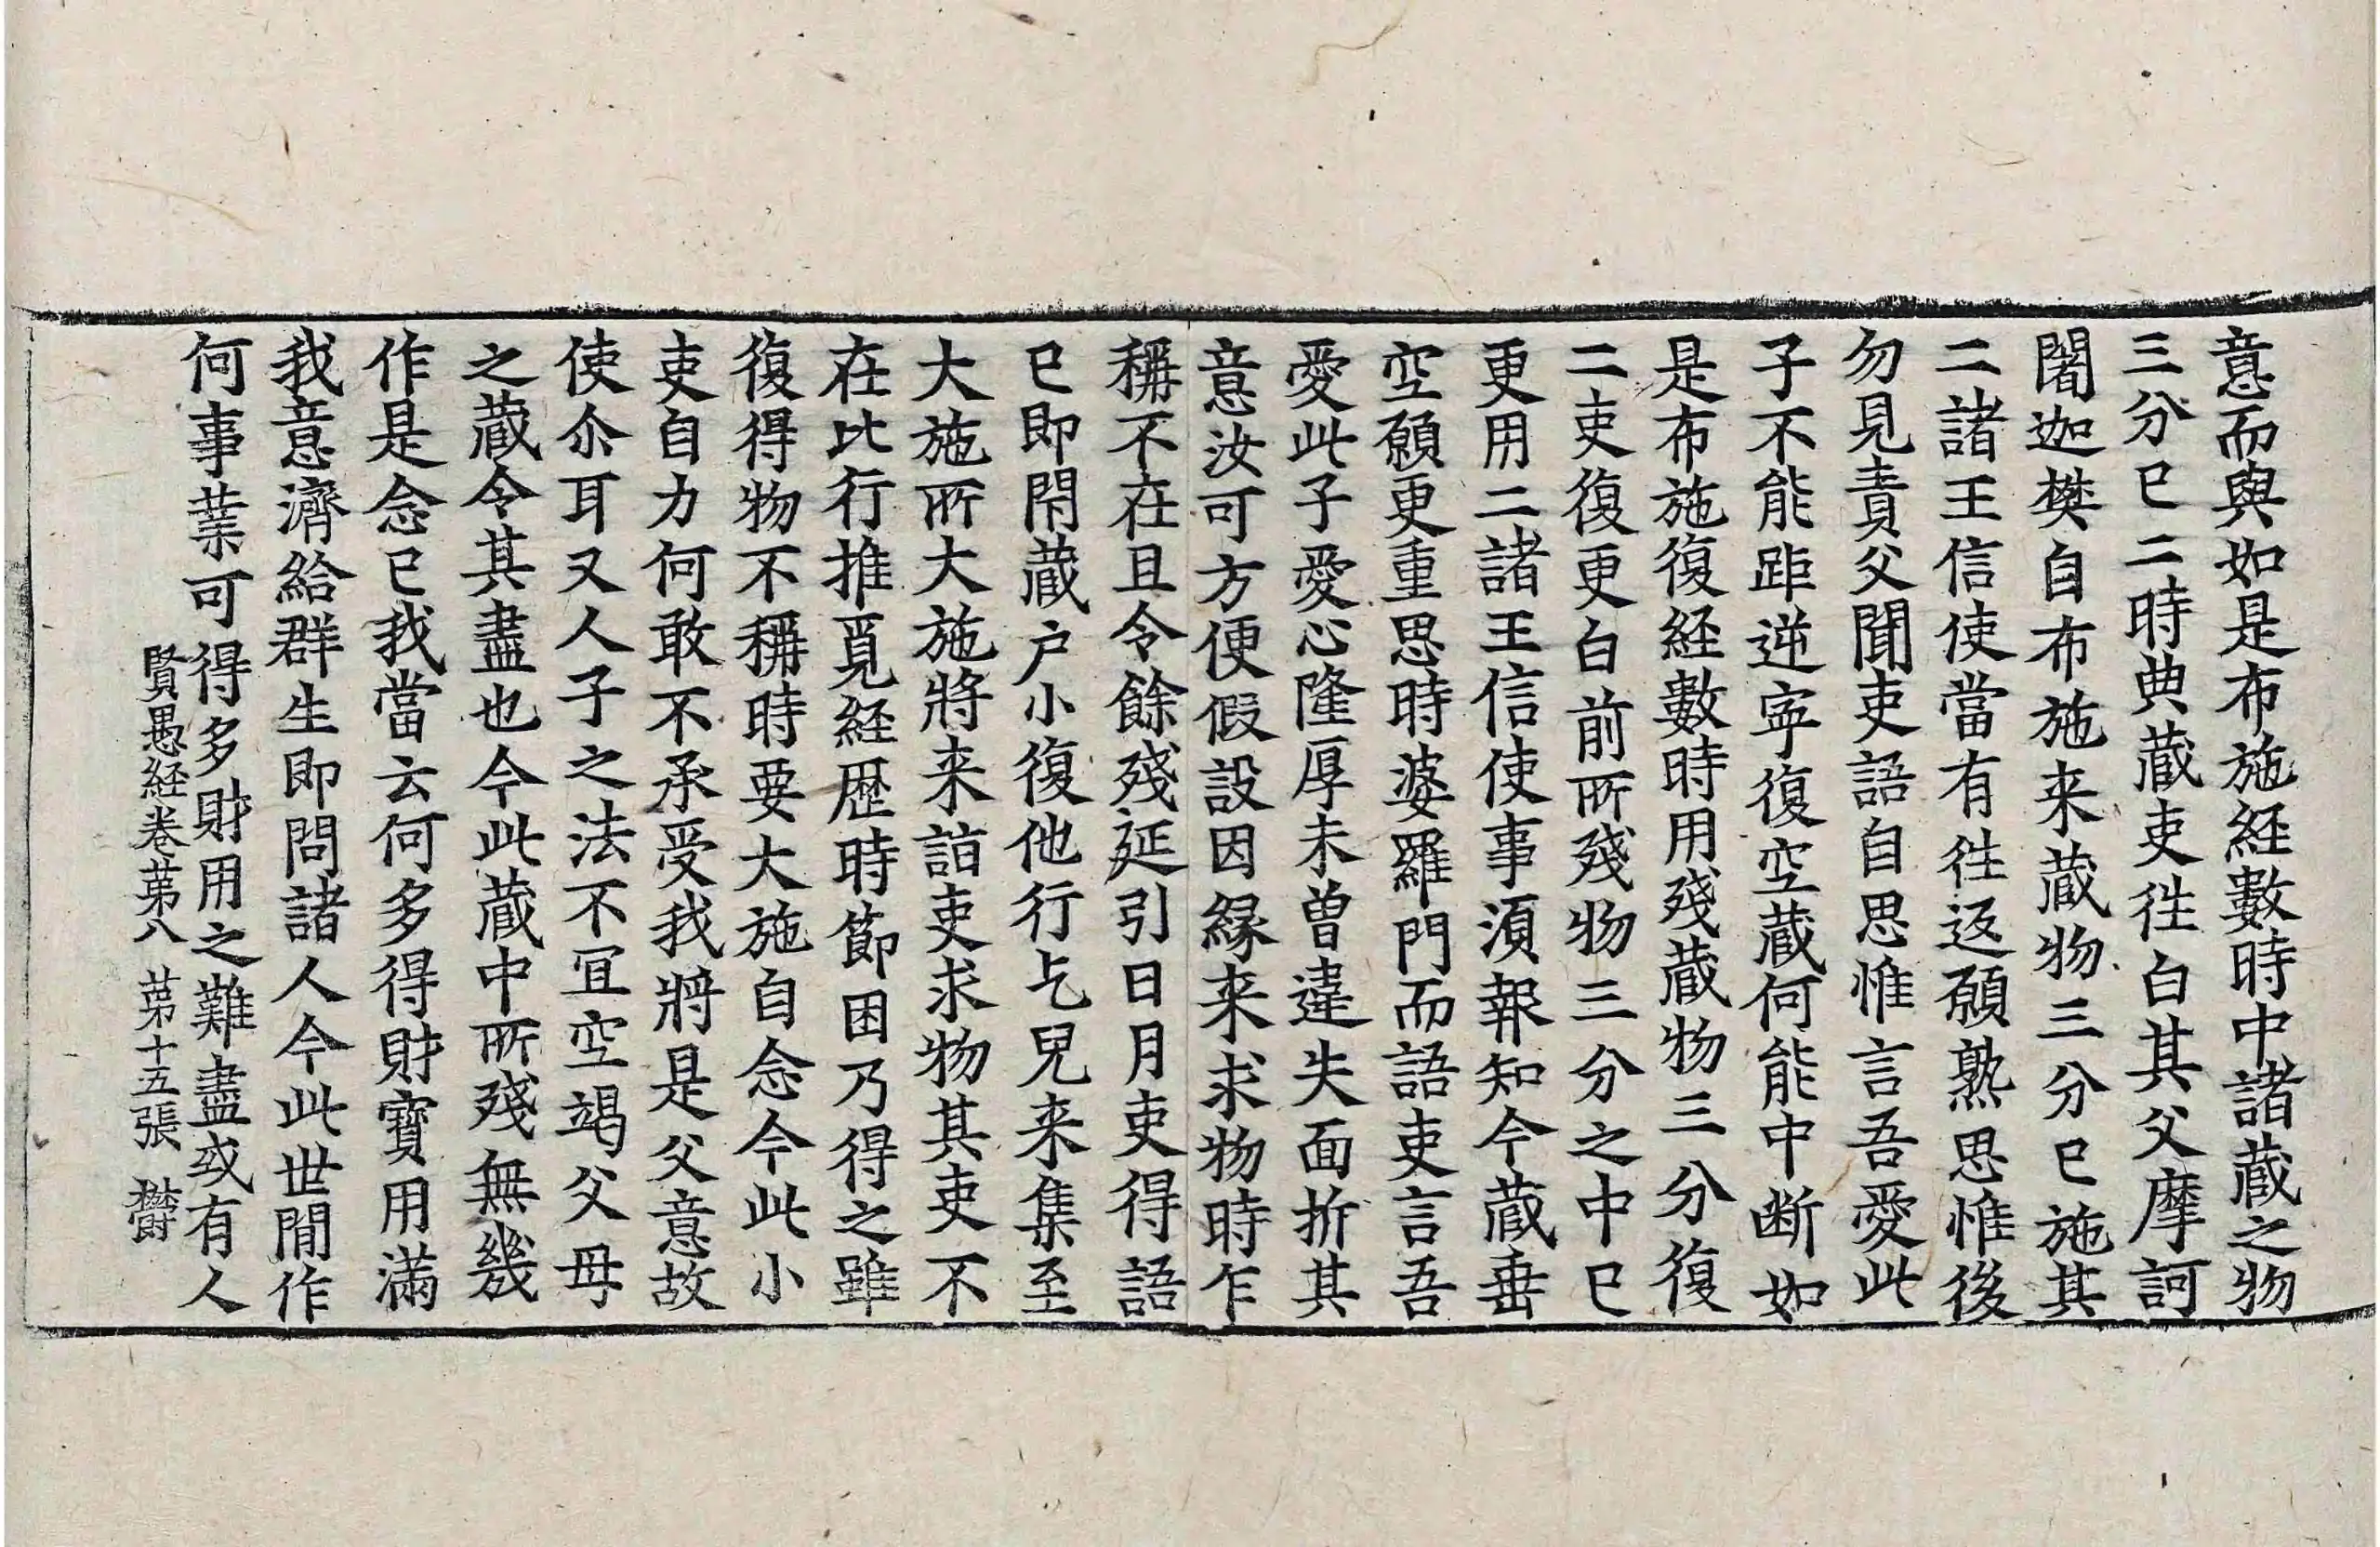 意而與如是布施経數時中諸蔵之物
三分已二時典蔵吏徃白其父摩訶
闍迦樊自布施来蔵物三分已施其
二諸王信使當有徃返願熟思惟後
勿見責父聞吏語自思惟言吾愛此
子不能距逆寧復空蔵何能中断如
是布施復経數時用殘蔵物三分復
二吏復更白前所殘物三分之中已
更用二諸王信使事湏報知今蔵垂
空願更重思時婆羅門而語吏言吾
愛此子愛心隆厚未曽違失面折其
意汝可方便假設因縁来求物時乍
稱不在且令餘殘延引日月吏得語
已即閇蔵户小復他行乞兒来集至
大施所大施將来詣吏求物其吏不
在比行推覓経歴時節困乃得之雖
復得物不稱時要大施自念今此小
吏自力何敢不承受我將是父意故
使尒耳又人子之法不冝空竭父母
之蔵令其盡也今此蔵中所殘無幾
作是念已我當云何多得財寳用滿
我意濟給群生即問諸人今此世間作
何事業可得多財用之難盡或有人
賢愚経卷苐八 苐十五張 欝